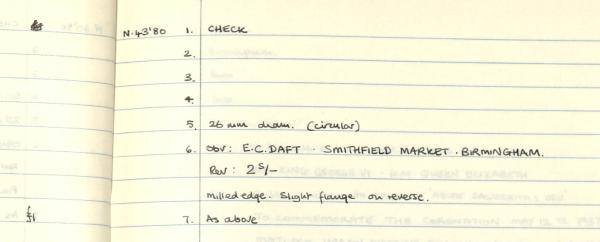 N.43'80 1. CHECK
2.
3.
4.
5. 26 mm diam. (circular)
6. obv: E.C. DAFT · SMITHFIELD MARKET · BIRMINGHAM.
Rev: 2S/-
milled edge. Slight flange on reverse.
7. As above